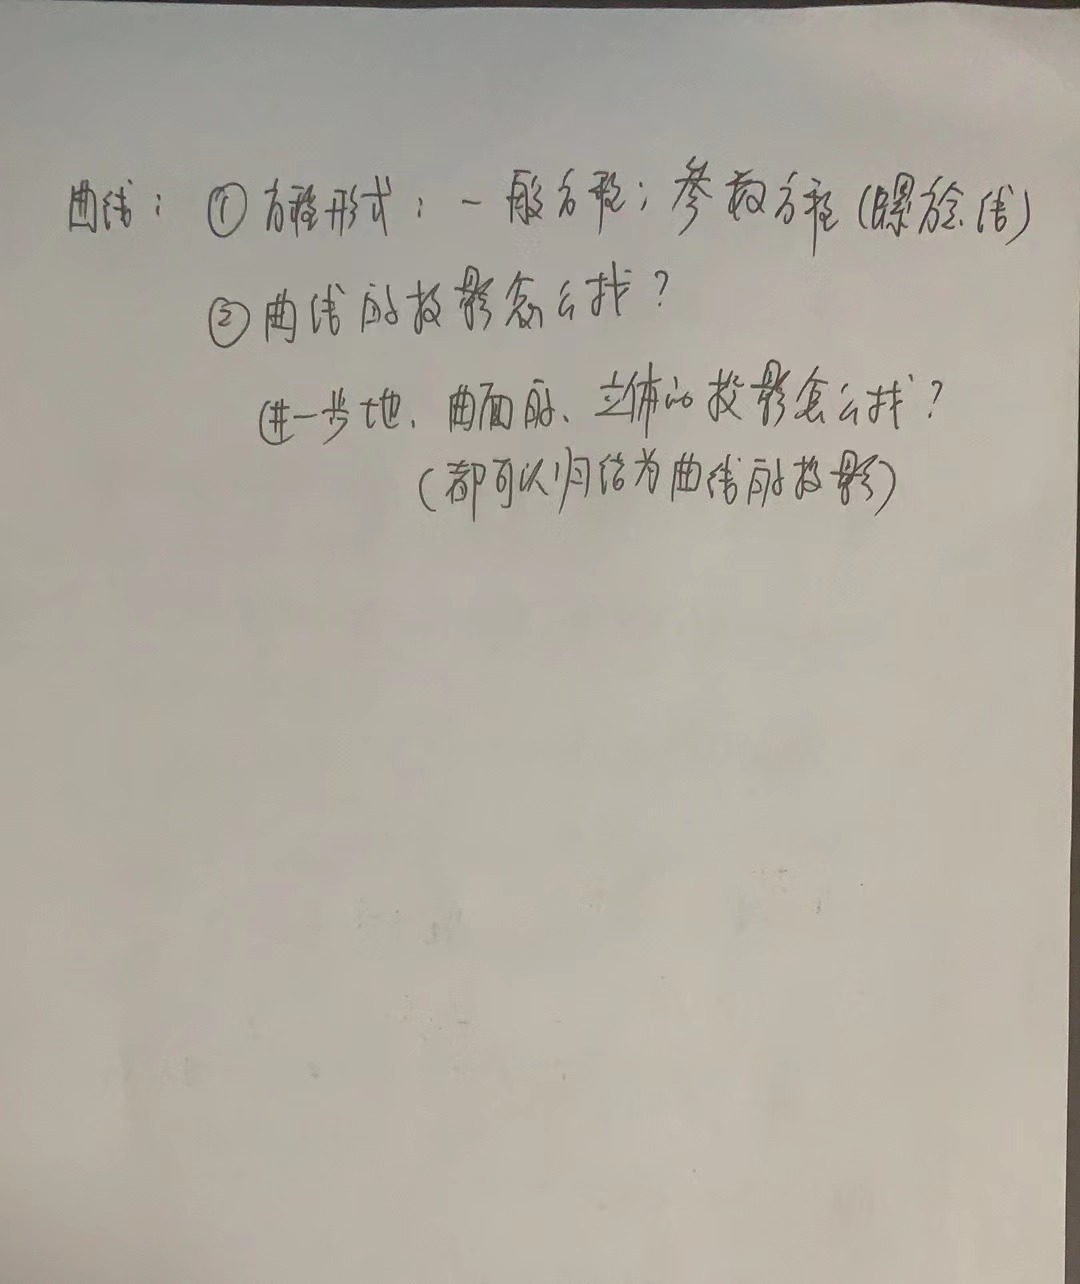 曲线：①方程形式：一般方程；参数方程（螺旋线）
②曲线的投影怎么找？
进一步地、曲面的、立体的投影怎么找？
（都可以归结为曲线的投影）